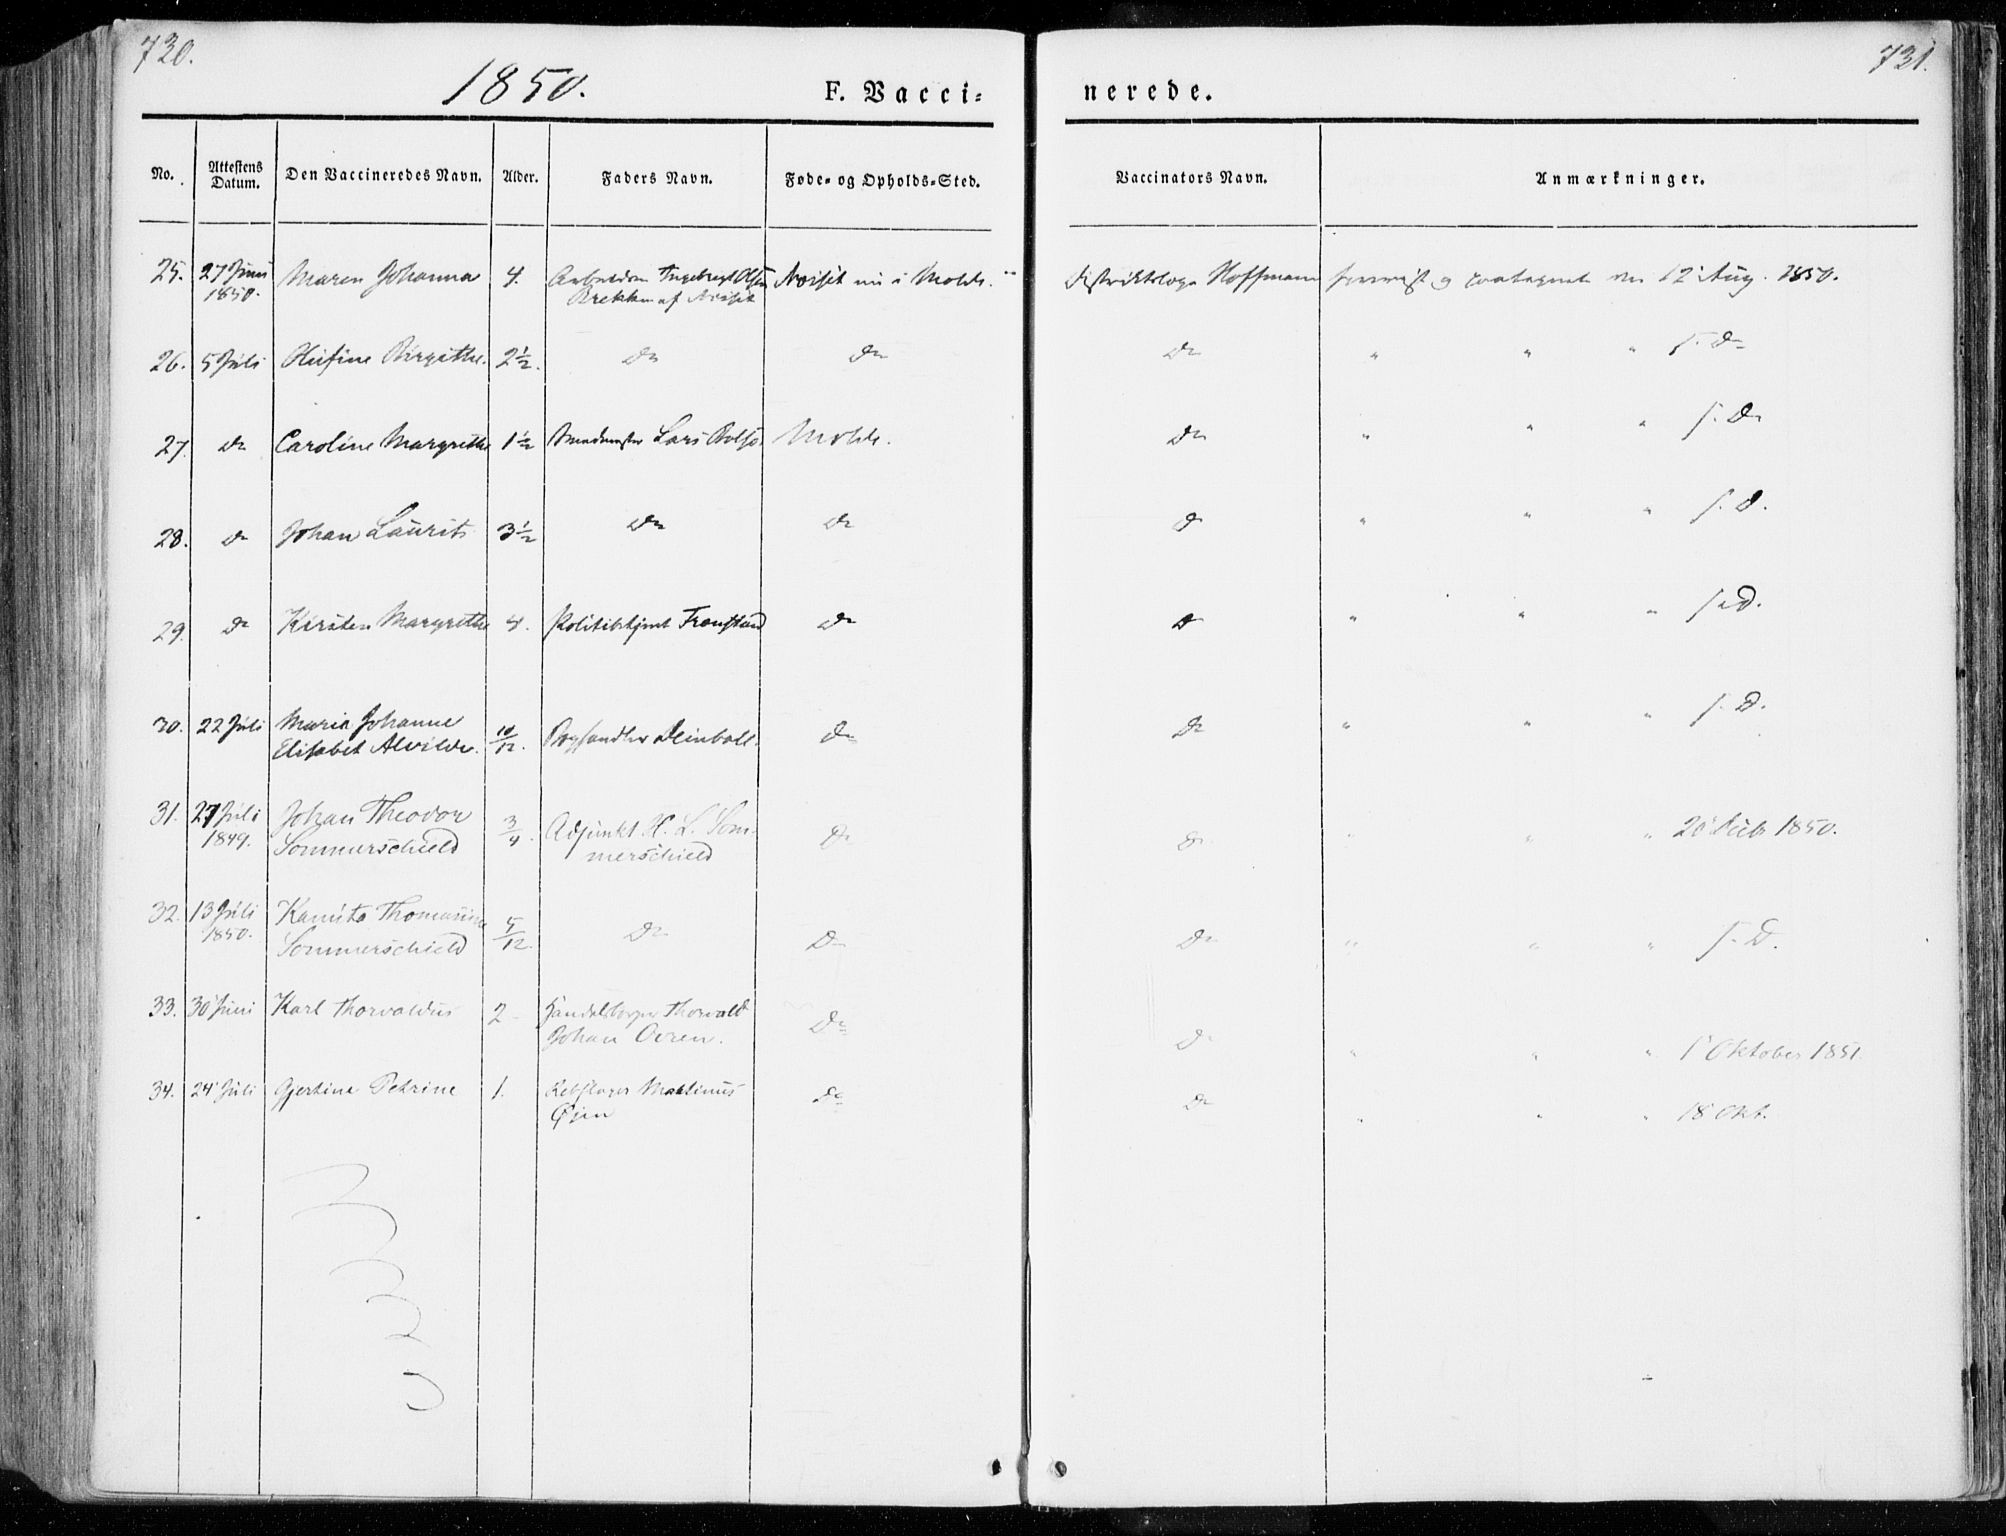 720.
731.
1850.
F. Vacci=
nerede.
No.
Attestens Datum.
Den Vaccineredes Navn.
Alder.
Faders Navn.
Føde= og Opholds=Sted.
Vaccinators Navn.
Anmærkninger.
25. 27 Juni 1850. Maren Johanna 4. Ingebregt Olsen Brekken af nu i Molde. Distriktslæge Hoffmann 12 Aug. 1850.
26. 5 Juli Birgithe. 2 1/2. Do Do Do " " " s. Do
27. Do Caroline Margrethe 1 1/2 Lars Molde. Do " " " s. Do
28. Do Johan Laurits 3 1/2 Do Do D " " " s. D.
29. Do Kirsten Margrethe 4. Politibetjent Do D " " " s. D.
30. 22 Juli Maria Johanne Elisabet Alvilde. 10/12. Deinboll. Do Do " " " s. D.
31. 27 Juli 1849. Johan Theodor Sommerschield 3/4. Adjunkt H. L. Som-
merschield Do Do " " " 1850.
32. 13 Juli 1850. Thomasine Sommerschield 5/12. Do Do Do " " " s. D.
33. 30 Juni Karl Thorvaldus 2 - Handelsborger Thorvald Johan Do D " " " 1 Oktober 1851.
34. 24 Juli Gjertine Petrine 1. Rebslager Martinus Øien Do Do " " " 18 Okt.